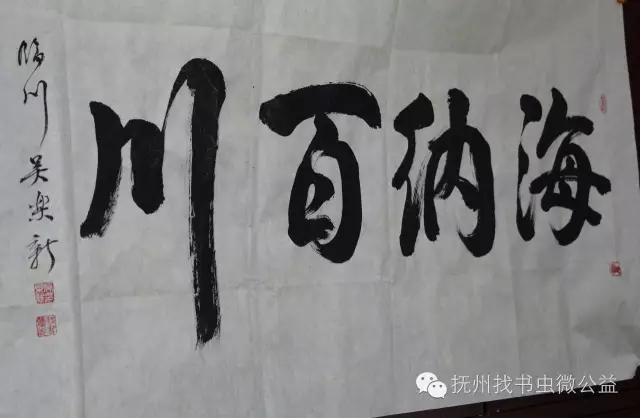 海纳百川
临川 吴乐新
抚州找书虫微公益